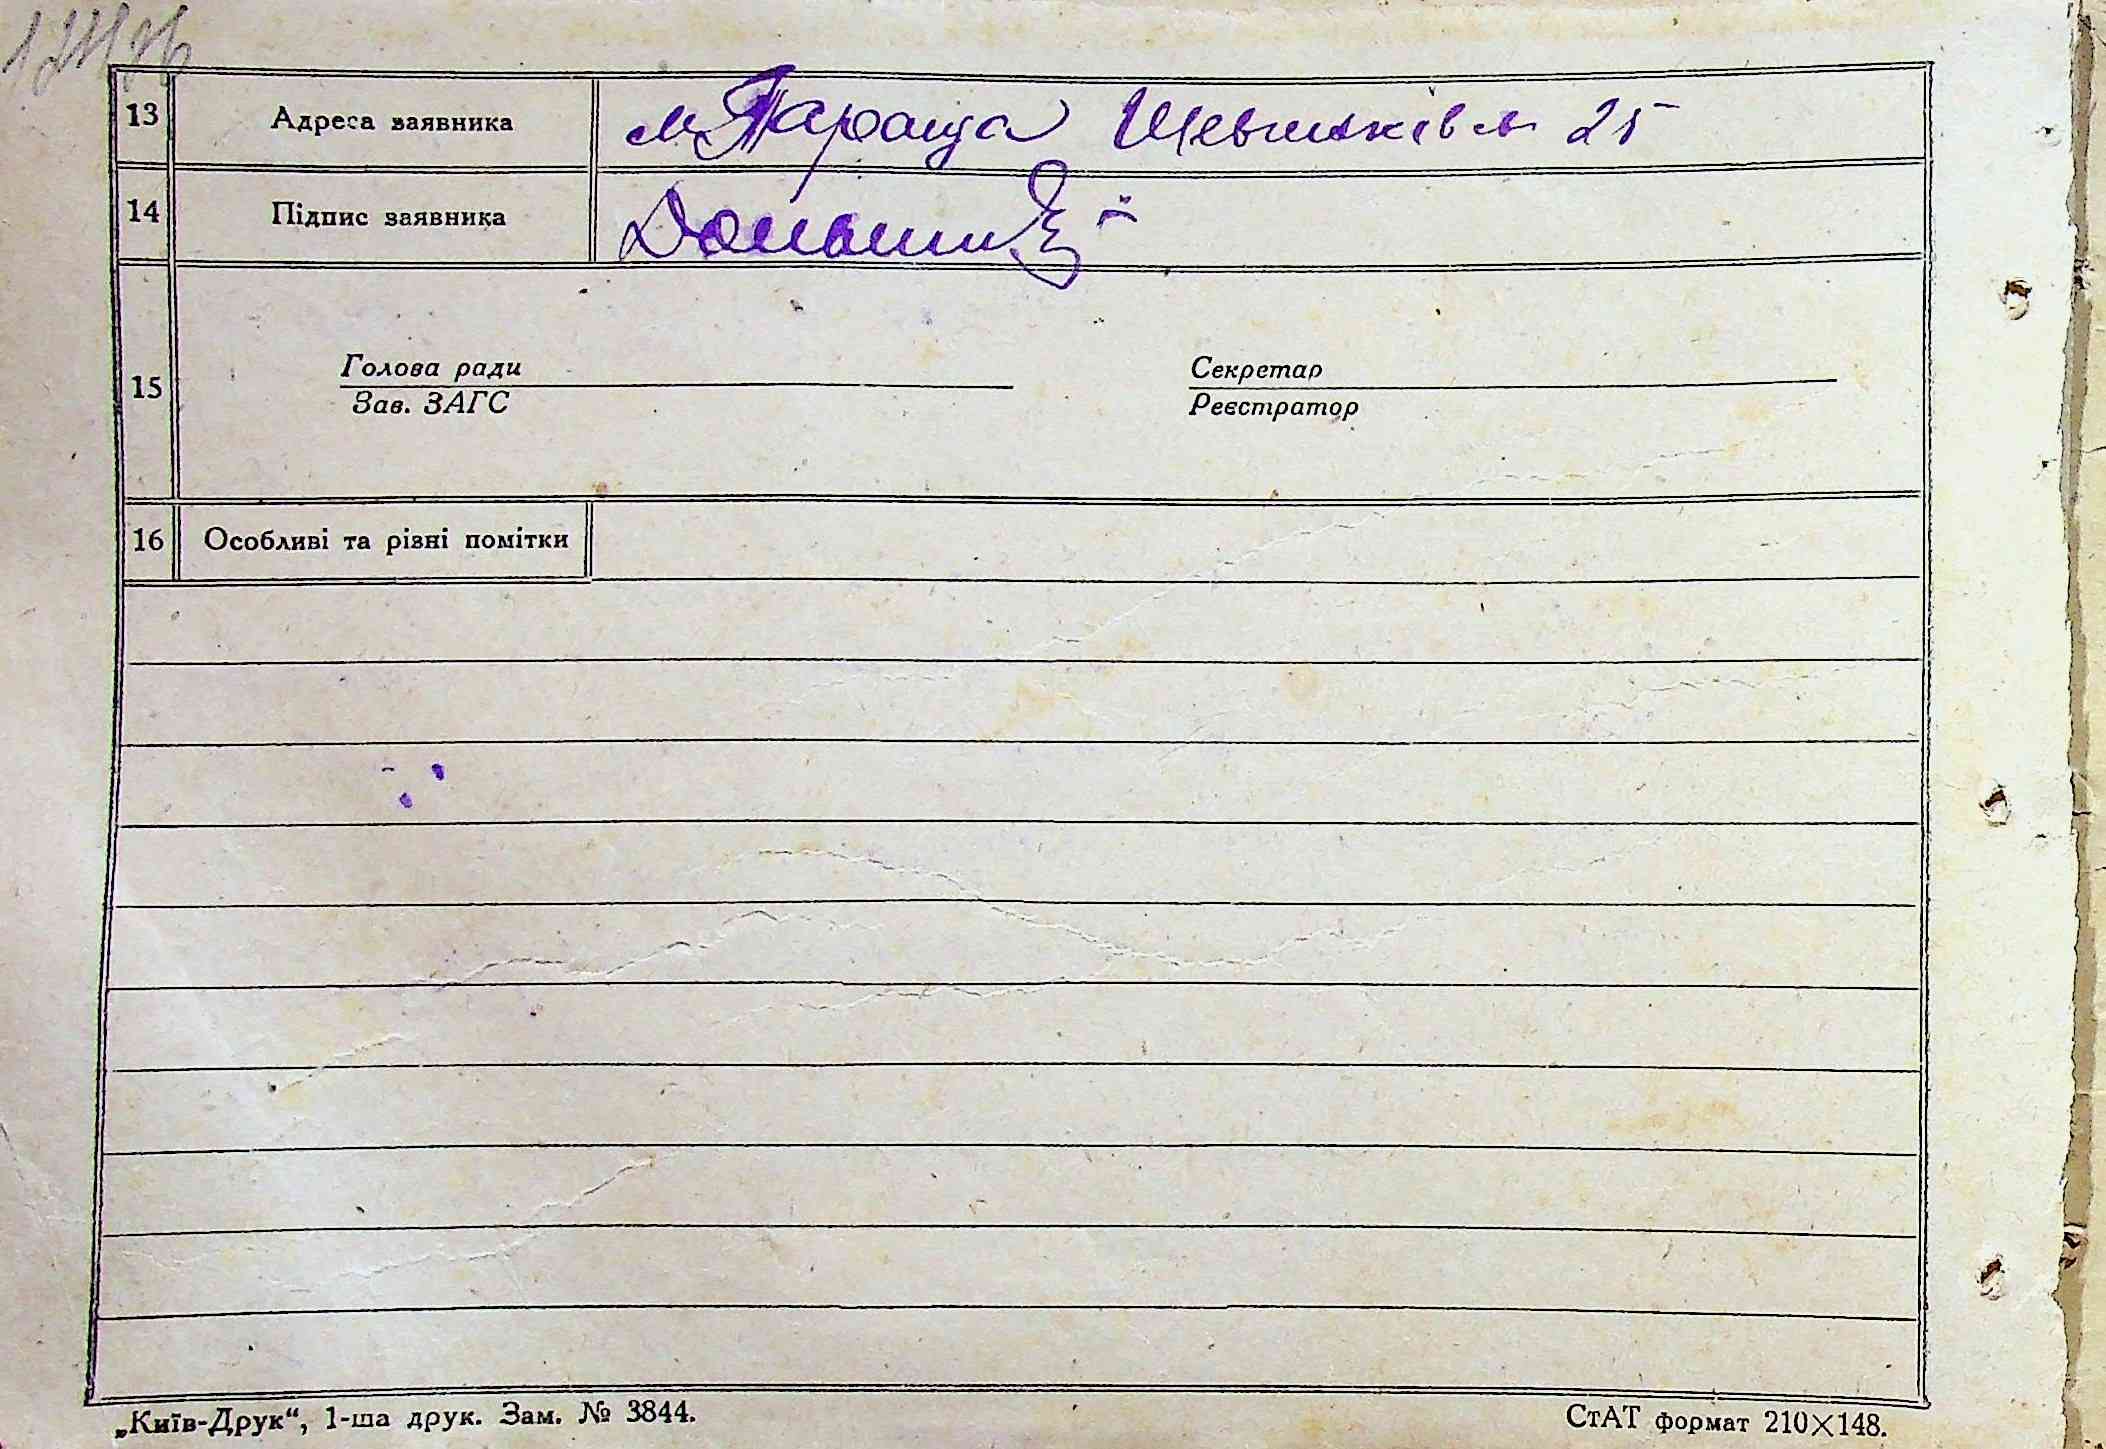 13 Адреса заявника м Тараща Шевченків 25
14 Підпис заявника
Голова ради Секретар
15
Зав. ЗАГС Реєстратор
16 Особливі та різні помітки
„Київ-Друк“, 1-ша друк. Зам. № 3844. СтАТ формат 210×148.